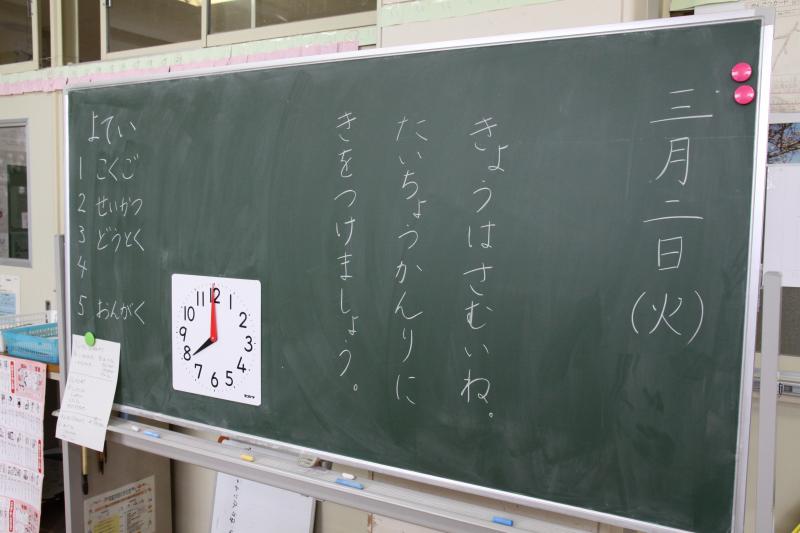 三月二日（火）
きょうはさむいね。
たいちょうかんりに
きをつけましょう。
よてい
1 こくご
2 せいかつ
3 どうとく
4
5 おんがく
12
1
2
3
4
5
6
7
8
9
10
11